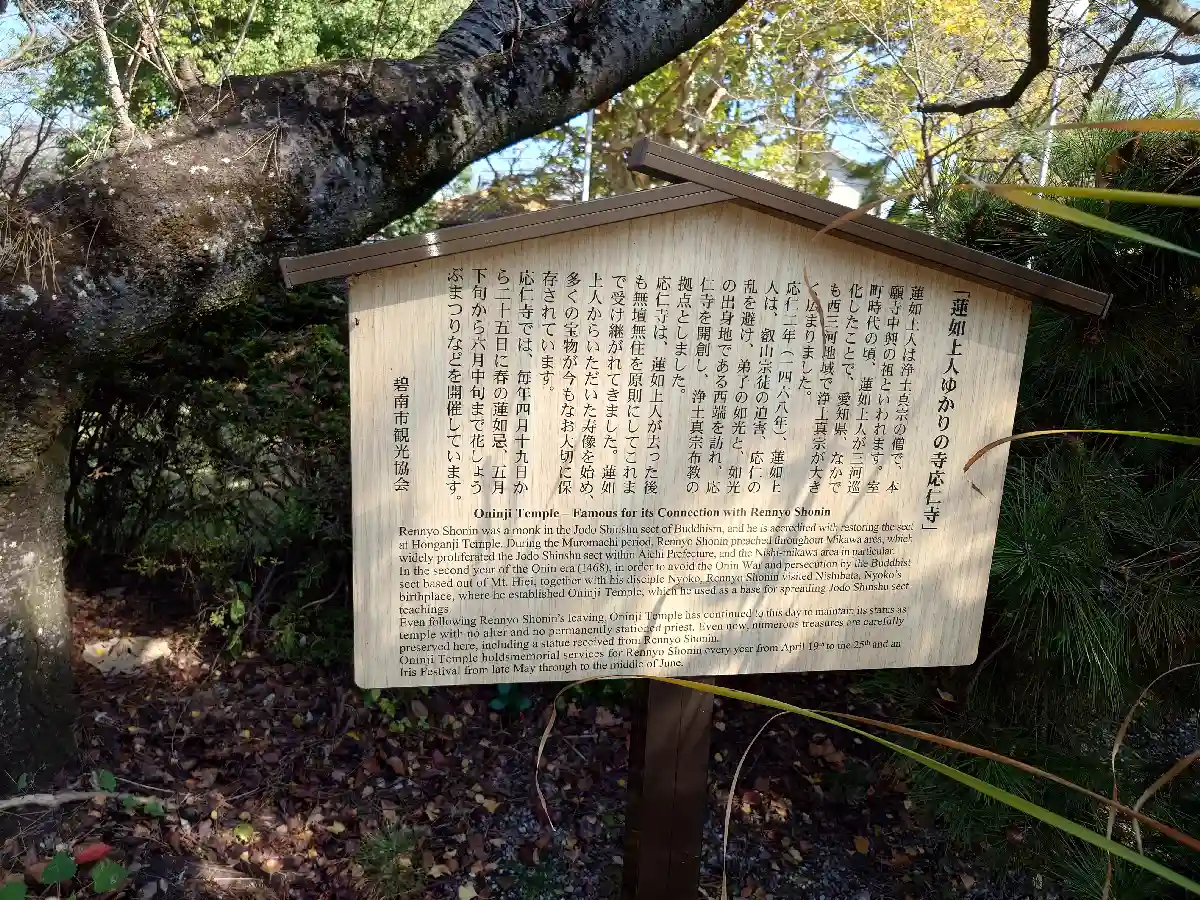 「蓮如上人ゆかりの寺応仁寺」
蓮如上人は浄土真宗の僧で、本
願寺中興の祖といわれます。室
町時代の頃、蓮如上人が三河巡
化したことで、愛知県、なかで
も西三河地域で浄土真宗が大き
く広まりました。
応仁二年(一四六八年)、蓮如上
人は、叡山宗徒の迫害、応仁の
乱を避け、弟子の如光と、如光
の出身地である西端を訪れ、応
仁寺を開創し、浄土真宗布教の
拠点としました。
応仁寺は、蓮如上人が去った後
も無壇無住を原則にしてこれま
で受け継がれてきました。蓮如
上人からいただいた寿像を始め、
多くの宝物が今もなお大切に保
存されています。
応仁寺では、毎年四月十九日か
ら二十五日に春の蓮如忌、五月
下旬から六月中旬まで花しょう
ぶまつりなどを開催しています。
碧南市観光協会
Oninji Temple – Famous for its Connection with Rennyo Shonin
Rennyo Shonin was a monk in the Jodo Shinshu sect of Buddhism, and he is accredited with restoring the sect
at Honganji Temple. During the Muromachi period, Rennyo Shonin preached throughout Mikawa area, which
widely proliferated the Jodo Shinshu sect within Aichi Prefecture, and the Nishi-mikawa area in particular.
In the second year of the Onin era (1468), in order to avoid the Onin War and persecution by the Buddhist
sect based out of Mt. Hiei, together with his disciple Nyoko, Rennyo Shonin visited Nishibata, Nyoko's
birthplace, where he established Oninji Temple, which he used as a base for spreading Jodo Shinshu sect
teachings.
Even following Rennyo Shonin's leaving, Oninji Temple has continued to this day to maintain its status as
temple with no alter and no permanently stationed priest. Even now, numerous treasures are carefully
preserved here, including a statue received from Rennyo Shonin.
Oninji Temple holdsmemorial services for Rennyo Shonin every year from April 19th to the 25th and an
Iris Festival from late May through to the middle of June.